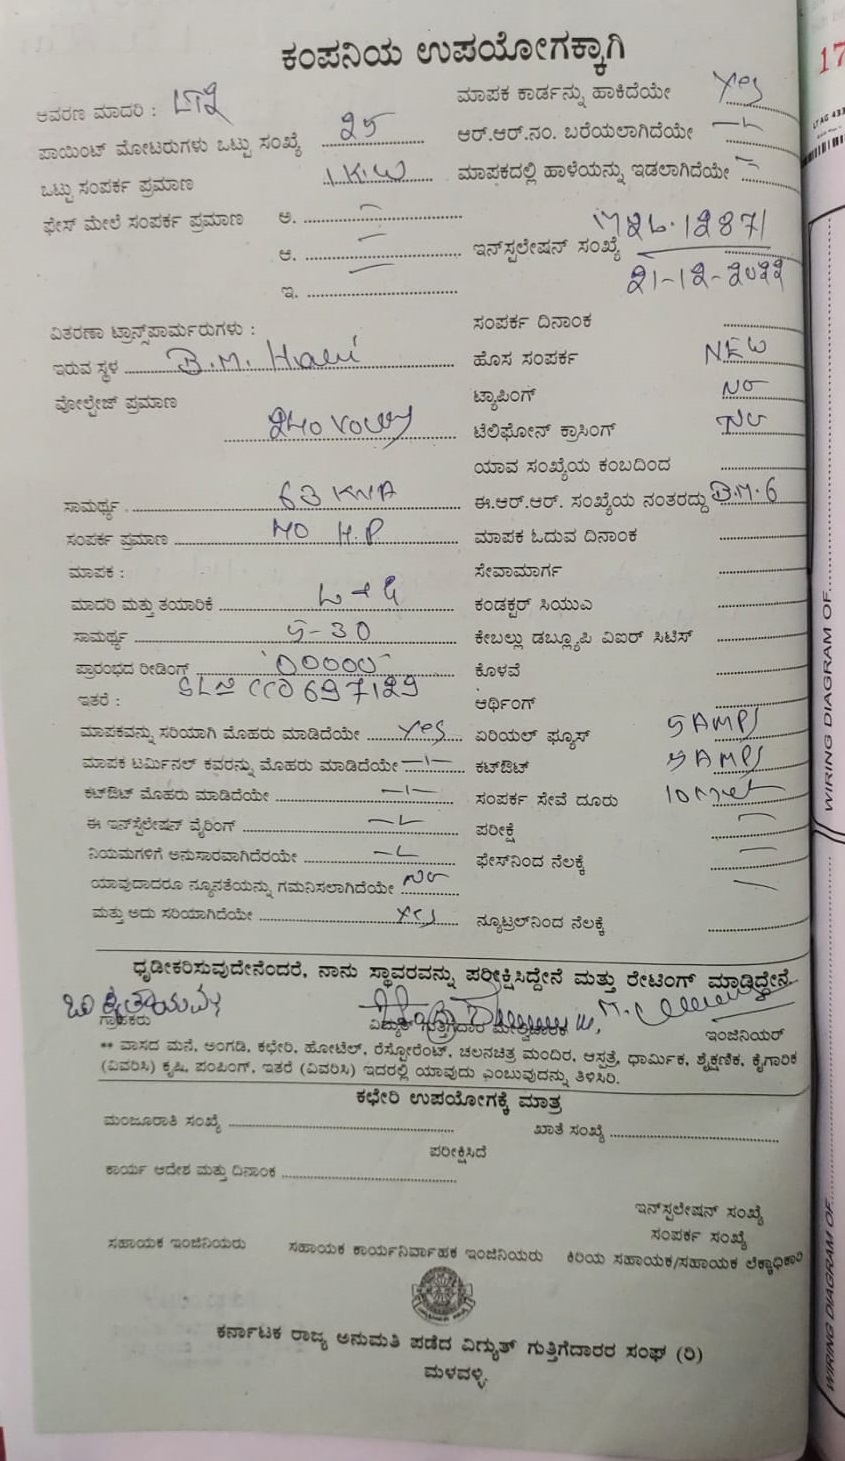 ಕಂಪನಿಯ ಉಪಯೋಗಕ್ಕಾಗಿ
17
ಆವರಣ ಮಾದರಿ : LT2
ಮಾಪಕ ಕಾರ್ಡನ್ನು ಹಾಕಿದೆಯೇ Yes
ಪಾಯಿಂಟ್ ಮೋಟರುಗಳು ಒಟ್ಟು ಸಂಖ್ಯೆ 25
ಆರ್.ಆರ್.ನಂ. ಬರೆಯಲಾಗಿದೆಯೇ
ಒಟ್ಟು ಸಂಪರ್ಕ ಪ್ರಮಾಣ 1 KW
ಮಾಪಕದಲ್ಲಿ ಹಾಳೆಯನ್ನು ಇಡಲಾಗಿದೆಯೇ
ಫೇಸ್ ಮೇಲೆ ಸಂಪರ್ಕ ಪ್ರಮಾಣ ಅ.
ಆ.
ಇ.
ಇನ್‌ಸ್ಟಲೇಷನ್ ಸಂಖ್ಯೆ 12871
21-12-2022
ವಿತರಣಾ ಟ್ರಾನ್ಸ್‌ಪಾರ್ಮರುಗಳು :
ಸಂಪರ್ಕ ದಿನಾಂಕ
ಇರುವ ಸ್ಥಳ B.M. Halli
ಹೊಸ ಸಂಪರ್ಕ NEW
ವೋಲ್ಟೇಜ್ ಪ್ರಮಾಣ
ಟ್ಯಾಪಿಂಗ್ NO
240
ಟೆಲಿಫೋನ್ ಕ್ರಾಸಿಂಗ್ NO
ಯಾವ ಸಂಖ್ಯೆಯ ಕಂಬದಿಂದ
ಸಾಮರ್ಥ್ಯ 63 KVA
ಈ.ಆರ್.ಆರ್. ಸಂಖ್ಯೆಯ ನಂತರದ್ದು B.M.6
ಸಂಪರ್ಕ ಪ್ರಮಾಣ 40 H.P
ಮಾಪಕ ಓದುವ ದಿನಾಂಕ
ಮಾಪಕ :
ಸೇವಾಮಾರ್ಗ
ಮಾದರಿ ಮತ್ತು ತಯಾರಿಕೆ L+G
ಕಂಡಕ್ಟರ್ ಸಿಯುಎ
ಸಾಮರ್ಥ್ಯ 5-30
ಕೇಬಲ್ಲು ಡಬ್ಲ್ಯೂಪಿ ವಿಐರ್ ಸಿಟಿಸ್
ಪ್ರಾರಂಭದ ರೀಡಿಂಗ್ '00000'
ಕೊಳವೆ
ಇತರೆ : SL No CC0697129
ಆರ್ಥಿಂಗ್
ಮಾಪಕವನ್ನು ಸರಿಯಾಗಿ ಮೊಹರು ಮಾಡಿದೆಯೇ Yes
ಏರಿಯಲ್ ಫ್ಯೂಸ್ 5 AMPS
ಮಾಪಕ ಟರ್ಮಿನಲ್ ಕವರನ್ನು ಮೊಹರು ಮಾಡಿದೆಯೇ
ಕಟ್‌ಔಟ್ 5 AMPS
ಕಟ್‌ಔಟ್ ಮೊಹರು ಮಾಡಿದೆಯೇ
ಸಂಪರ್ಕ ಸೇವೆ ದೂರು
ಈ ಇನ್‌ಸ್ಟೆಲೇಷನ್ ವೈರಿಂಗ್
ಪರೀಕ್ಷೆ
ನಿಯಮಗಳಿಗೆ ಅನುಸಾರವಾಗಿದೆರೆಯೇ
ಫೇಸ್‌ನಿಂದ ನೆಲಕ್ಕೆ
ಯಾವುದಾದರೂ ನ್ಯೂನತೆಯನ್ನು ಗಮನಿಸಲಾಗಿದೆಯೇ No
ಮತ್ತು ಅದು ಸರಿಯಾಗಿದೆಯೇ Yes
ನ್ಯೂಟ್ರಲ್‌ನಿಂದ ನೆಲಕ್ಕೆ
ಧೃಡೀಕರಿಸುವುದೇನೆಂದರೆ, ನಾನು ಸ್ಥಾವರವನ್ನು ಪರೀಕ್ಷಿಸಿದ್ದೇನೆ ಮತ್ತು ರೇಟಿಂಗ್ ಮಾಡಿದ್ದೇನೆ.
ಗ್ರಾಹಕರು
ವಿದ್ಯುತ್ ಗುತ್ತಿಗೆದಾರ ಮೇಲ್ವಿಚಾರಕ
ಇಂಜಿನಿಯರ್
** ವಾಸದ ಮನೆ, ಅಂಗಡಿ, ಕಛೇರಿ, ಹೋಟೆಲ್, ರೆಸ್ಟೋರೆಂಟ್, ಚಲನಚಿತ್ರ ಮಂದಿರ, ಆಸ್ಪತ್ರೆ, ಧಾರ್ಮಿಕ, ಶೈಕ್ಷಣಿಕ, ಕೈಗಾರಿಕ
(ವಿವರಿಸಿ) ಕೃಷಿ, ಪಂಪಿಂಗ್, ಇತರೆ (ವಿವರಿಸಿ) ಇದರಲ್ಲಿ ಯಾವುದು ಎಂಬುವುದನ್ನು ತಿಳಿಸಿರಿ.
ಕಛೇರಿ ಉಪಯೋಗಕ್ಕೆ ಮಾತ್ರ
ಮಂಜೂರಾತಿ ಸಂಖ್ಯೆ
ಖಾತೆ ಸಂಖ್ಯೆ
ಪರೀಕ್ಷಿಸಿದೆ
ಕಾರ್ಯ ಆದೇಶ ಮತ್ತು ದಿನಾಂಕ
ಇನ್‌ಸ್ಪಲೇಷನ್ ಸಂಖ್ಯೆ
ಸಂಪರ್ಕ ಸಂಖ್ಯೆ
ಸಹಾಯಕ ಇಂಜಿನಿಯರು
ಸಹಾಯಕ ಕಾರ್ಯನಿರ್ವಾಹಕ ಇಂಜಿನಿಯರು
ಕಿರಿಯ ಸಹಾಯಕ/ಸಹಾಯಕ ಲೆಕ್ಕಾಧಿಕಾರಿ
ಕರ್ನಾಟಕ ರಾಜ್ಯ ಅನುಮತಿ ಪಡೆದ ವಿದ್ಯುತ್ ಗುತ್ತಿಗೆದಾರರ ಸಂಘ (ರಿ)
ಮಳವಳ್ಳಿ
WIRING DIAGRAM OF
WIRING DIAGRAM OF